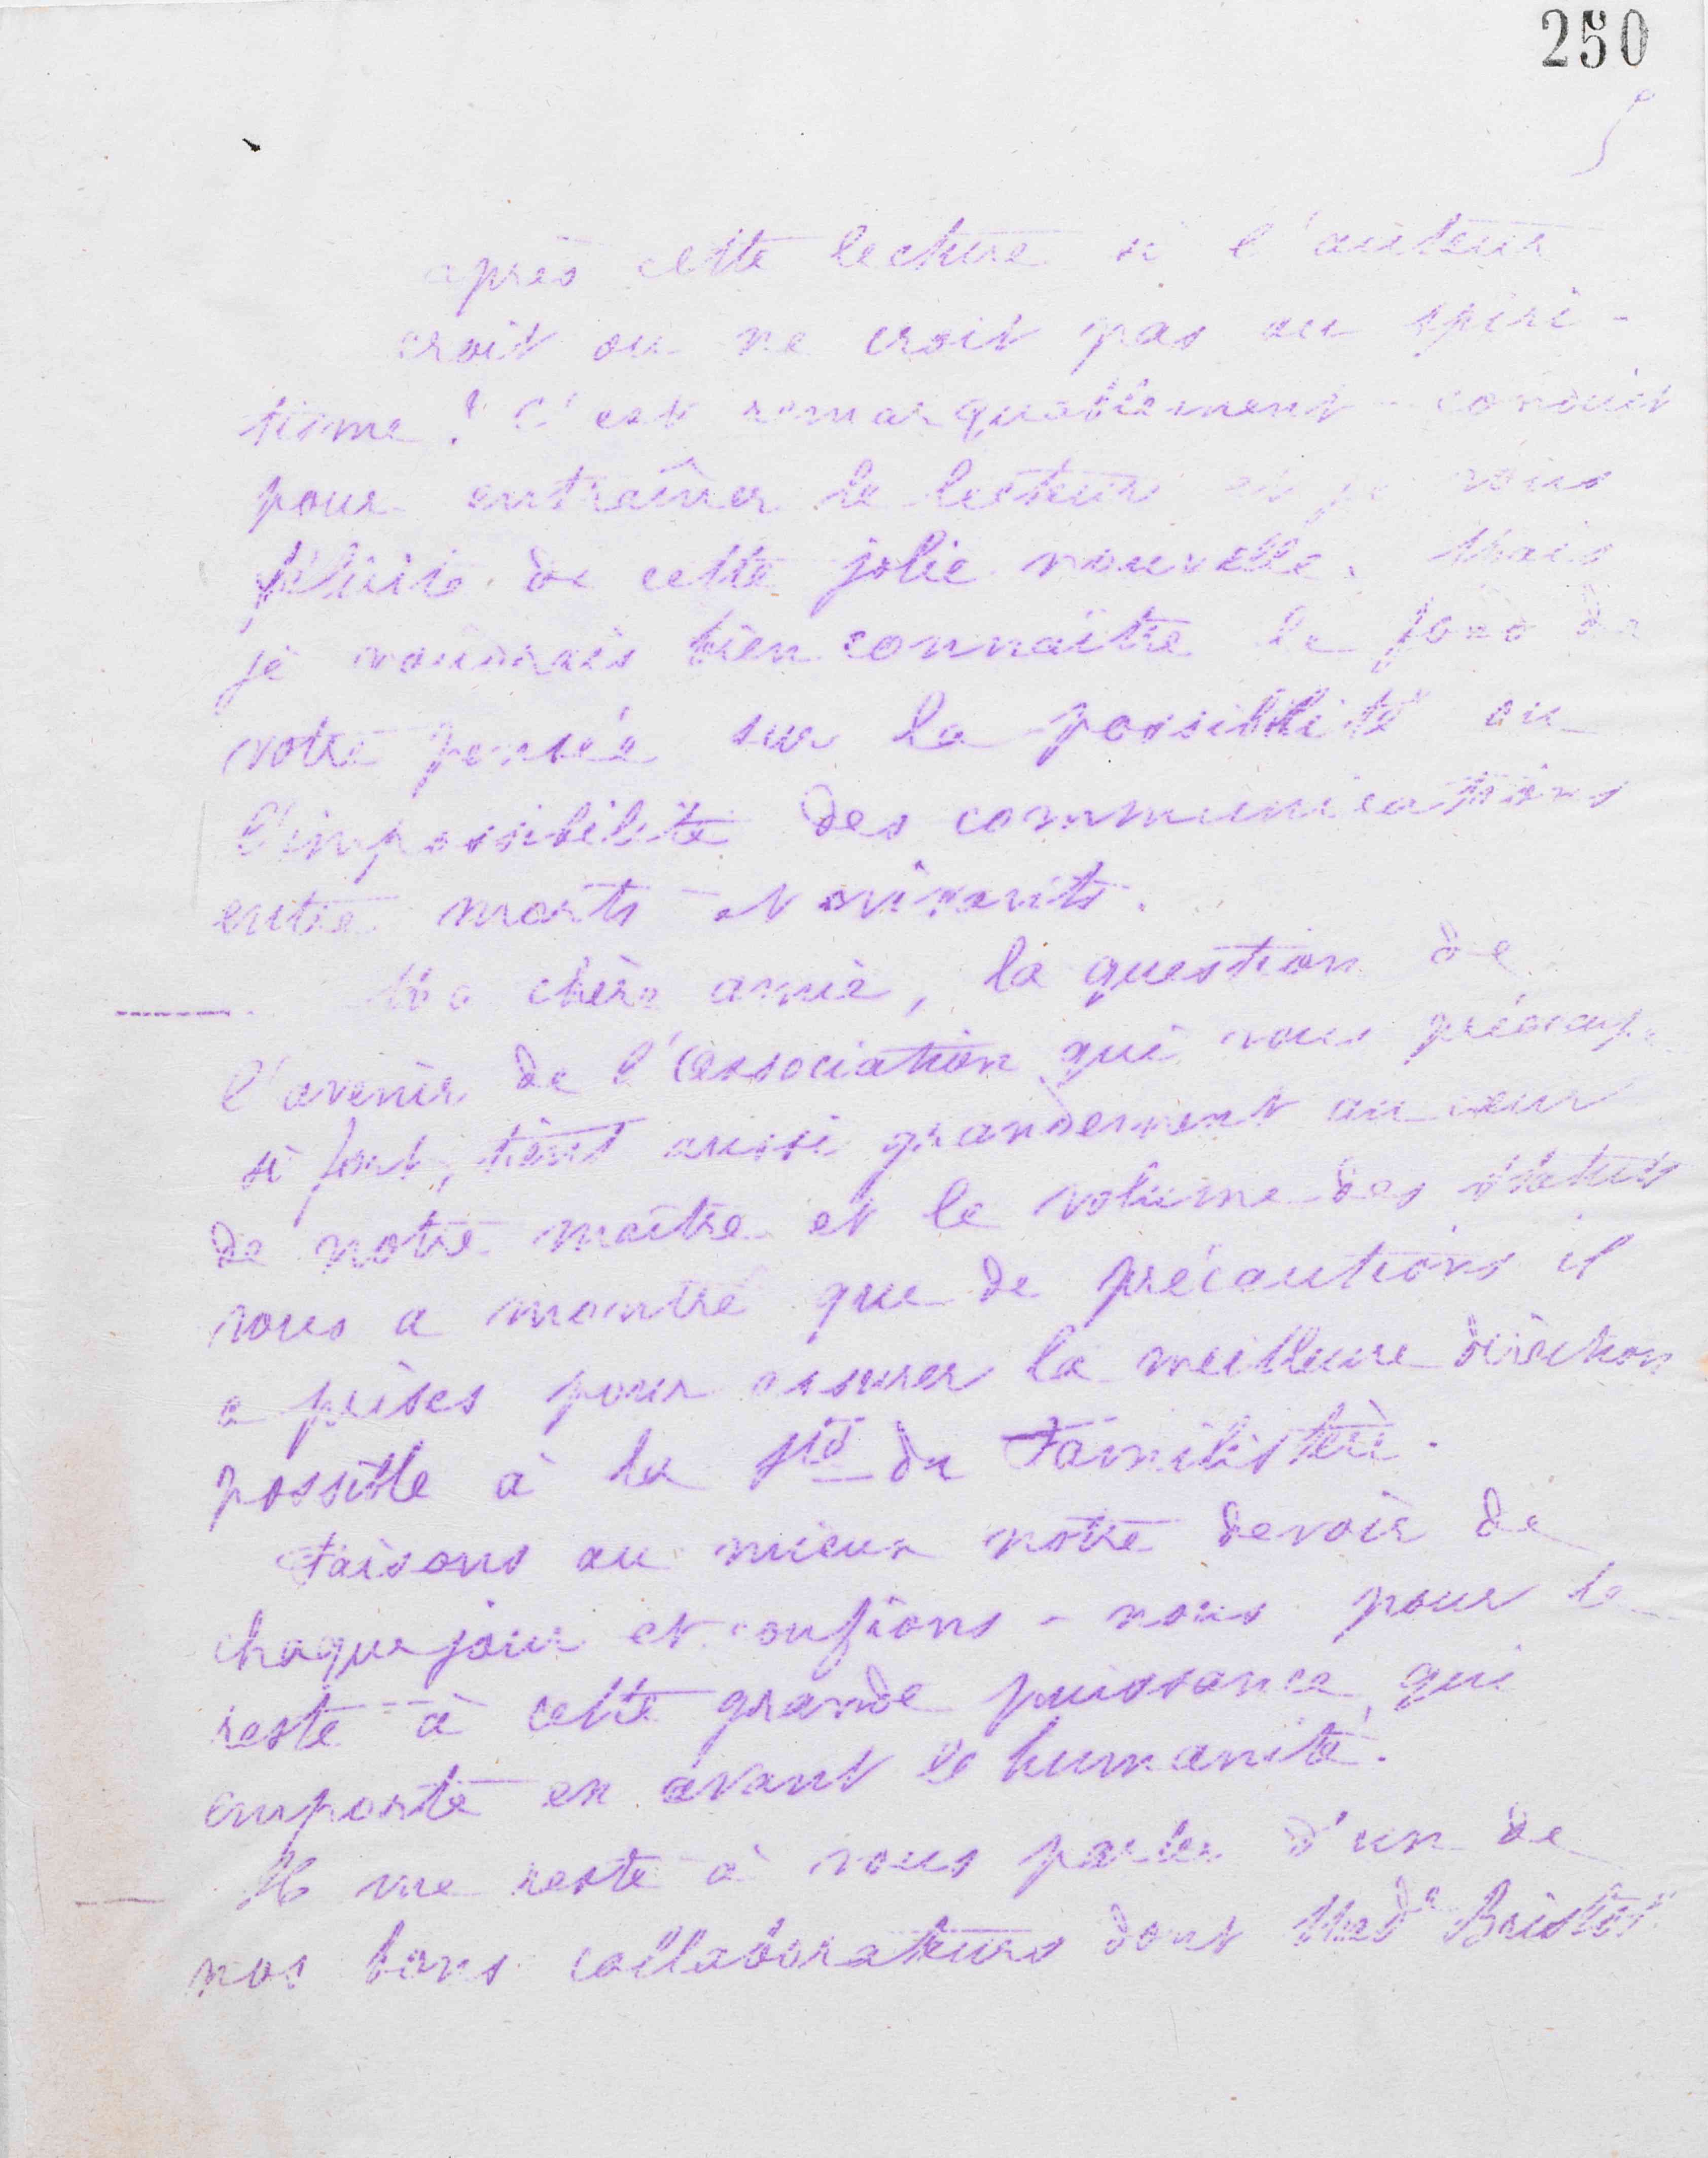 250
5
après cette lecture si l'auteur
croit ou ne croit pas au spiri-
tisme ! C'est remarquablement conduit
pour entraîner le lecteur et je vous
félicite de cette jolie nouvelle. Mais
je voudrais bien connaître le fond de
votre pensée sur la possibilité ou
l'impossibilité des communications
entre morts et vivants.
Ma chère amie, la question de
l'avenir de l'association qui vous préoccupe
si fort, tient aussi grandement au cœur
de notre maître et le volume des statuts
vous a montré que de précautions il
a prises pour assurer la meilleure direction
possible à la Sté du Familistère.
Faisons au mieux notre devoir de
chaque jour et confions-nous pour le
reste à cette grande puissance qui
emporte en avant l'humanité.
Il me reste à vous parler d'un de
nos bons collaborateurs dont Made Bristol